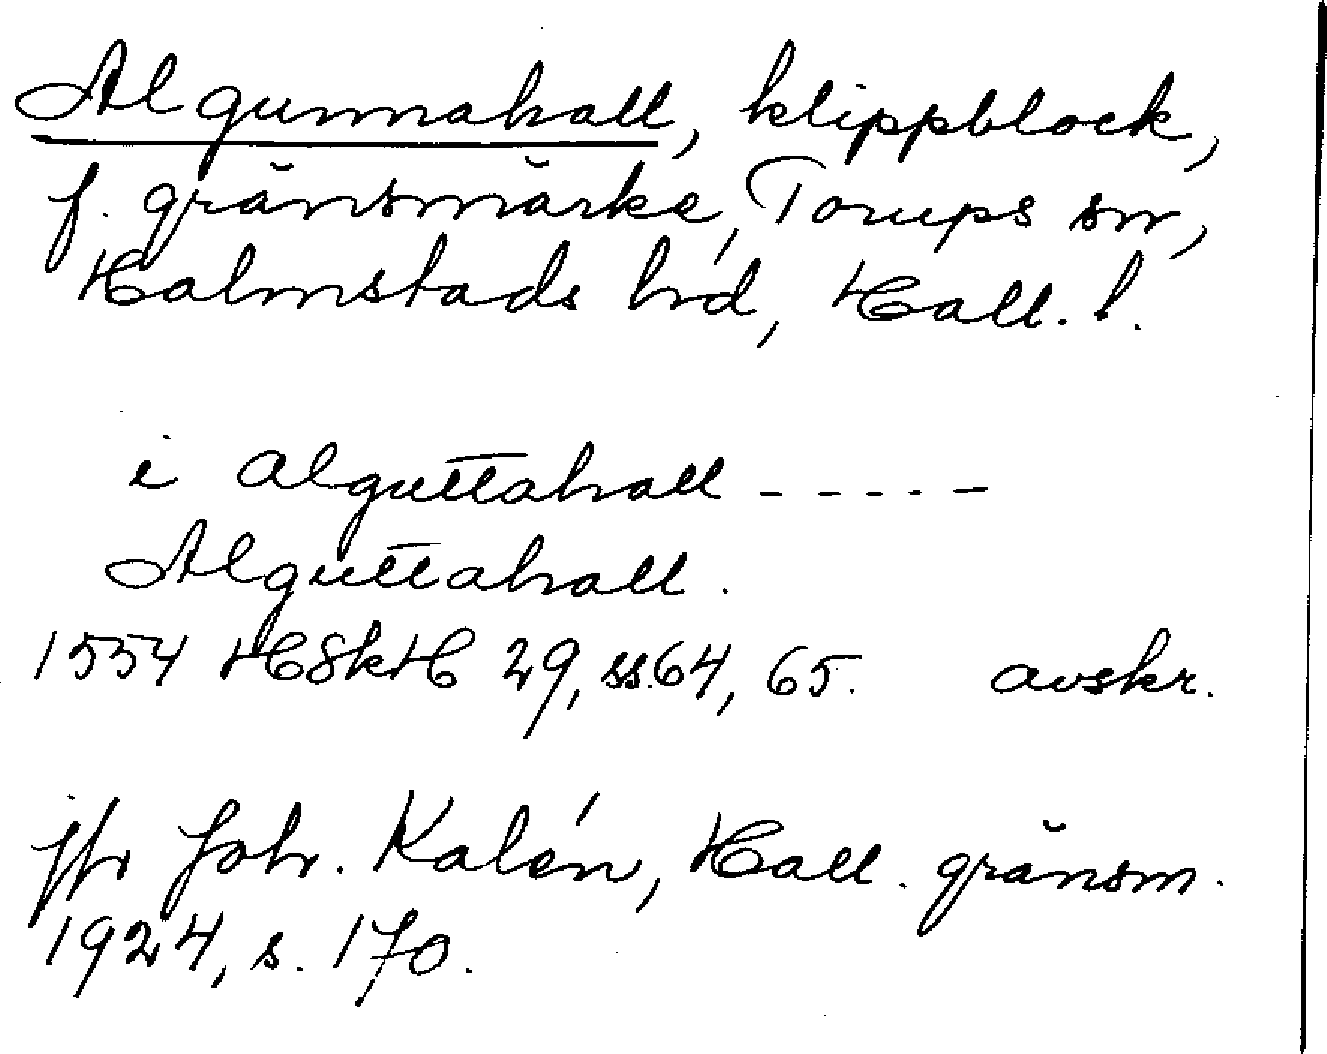 Algunnahall, klippblock,
f. gränsmärke, Torups sn,
Halmstads hd, Hall. l.
i alguttahall - - - - -
Alguttahall.
1554 HSkH 29, ss. 64, 65. avskr.
jfr Joh. Kalén, Hall. gränsm.
1924, s. 170.